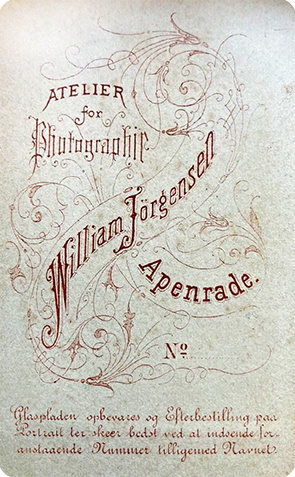 ATELIER
for
Photographie
William Jörgensen
Apenrade.
No
Glaspladen opbevares og Efterbestilling paa
Portrait ter skeer bedst ved at indsende for-
anstaaende Nummer tilligemed Navnet.